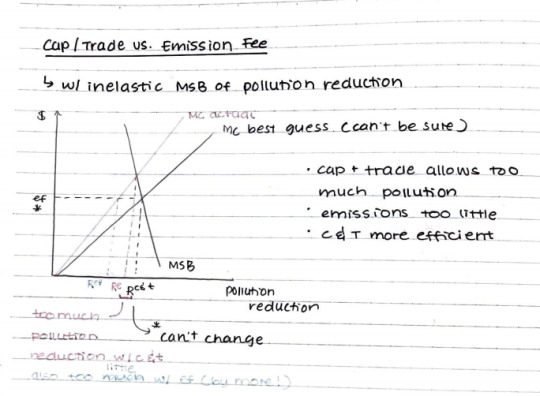 Cap/Trade vs. Emission Fee
↳ w/ inelastic MSB of pollution reduction
$
MC actual
MC best guess (can't be sure)
• cap + trade allows too
much pollution
• emissions too little
• c&T more efficient
ef
*
MSB
Ref Re Rc&t
pollution
reduction
too much
pollution
reduction w/ c&t
* can't change
little
also too much w/ ef (by more!)